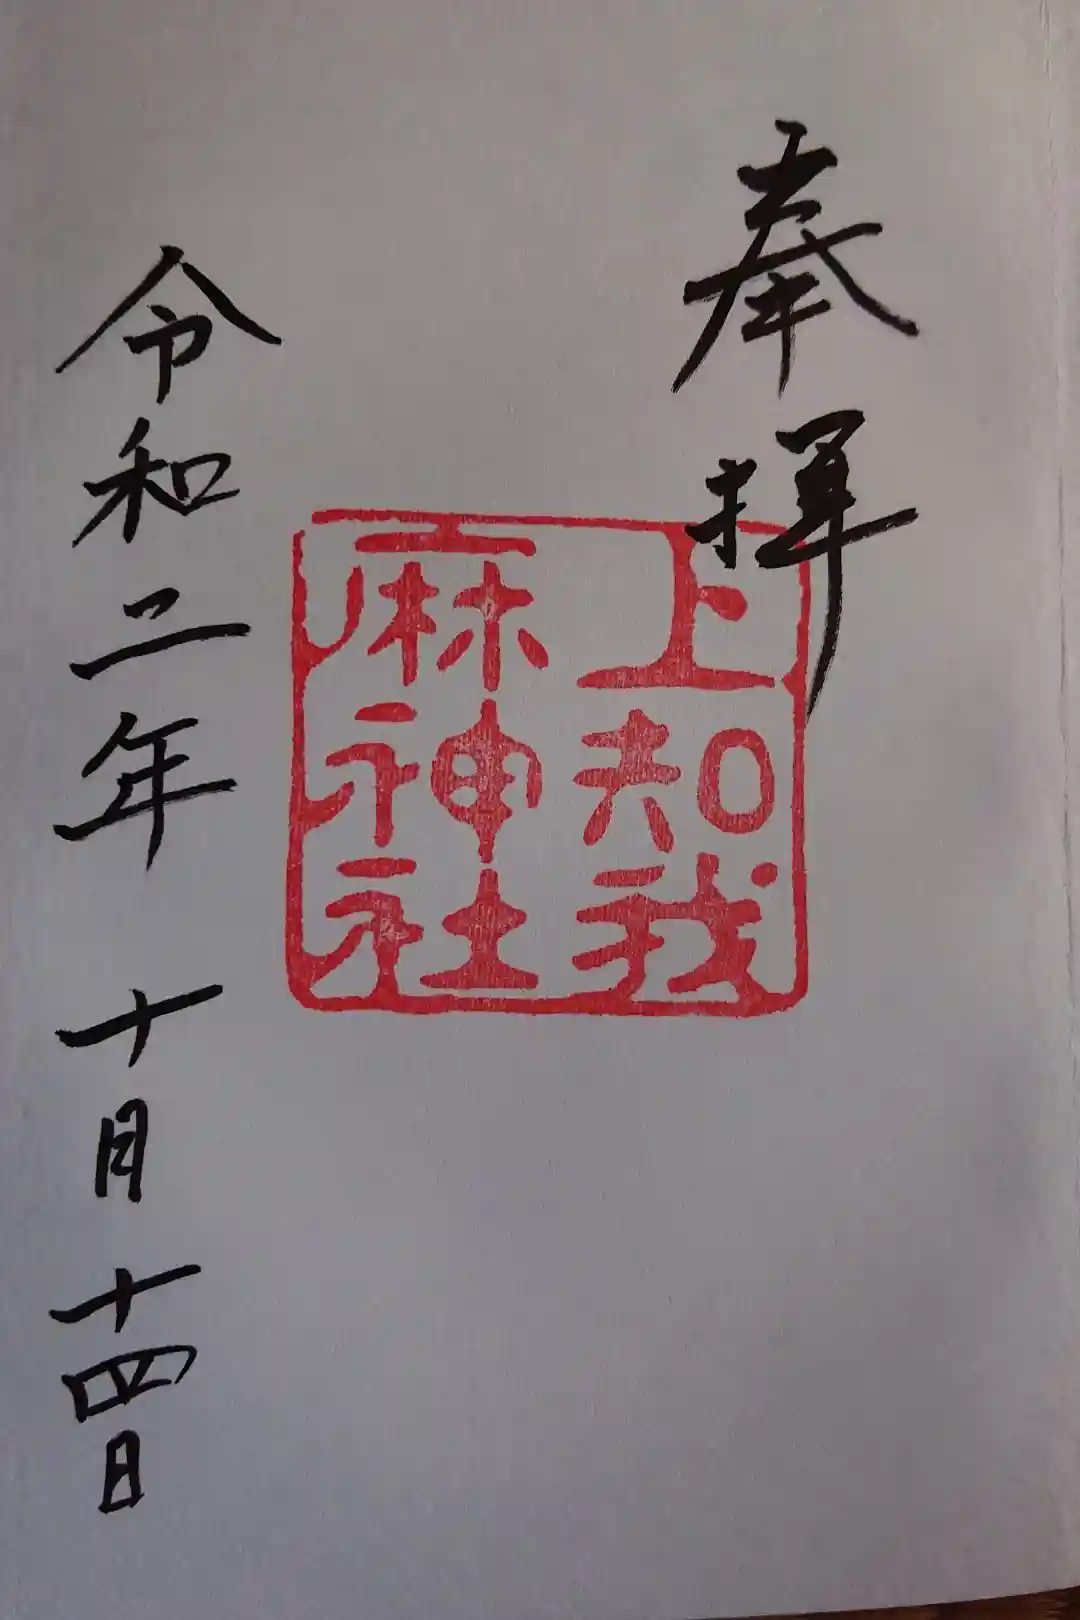 奉拝
上知我
麻神社
令和二年十月十四日